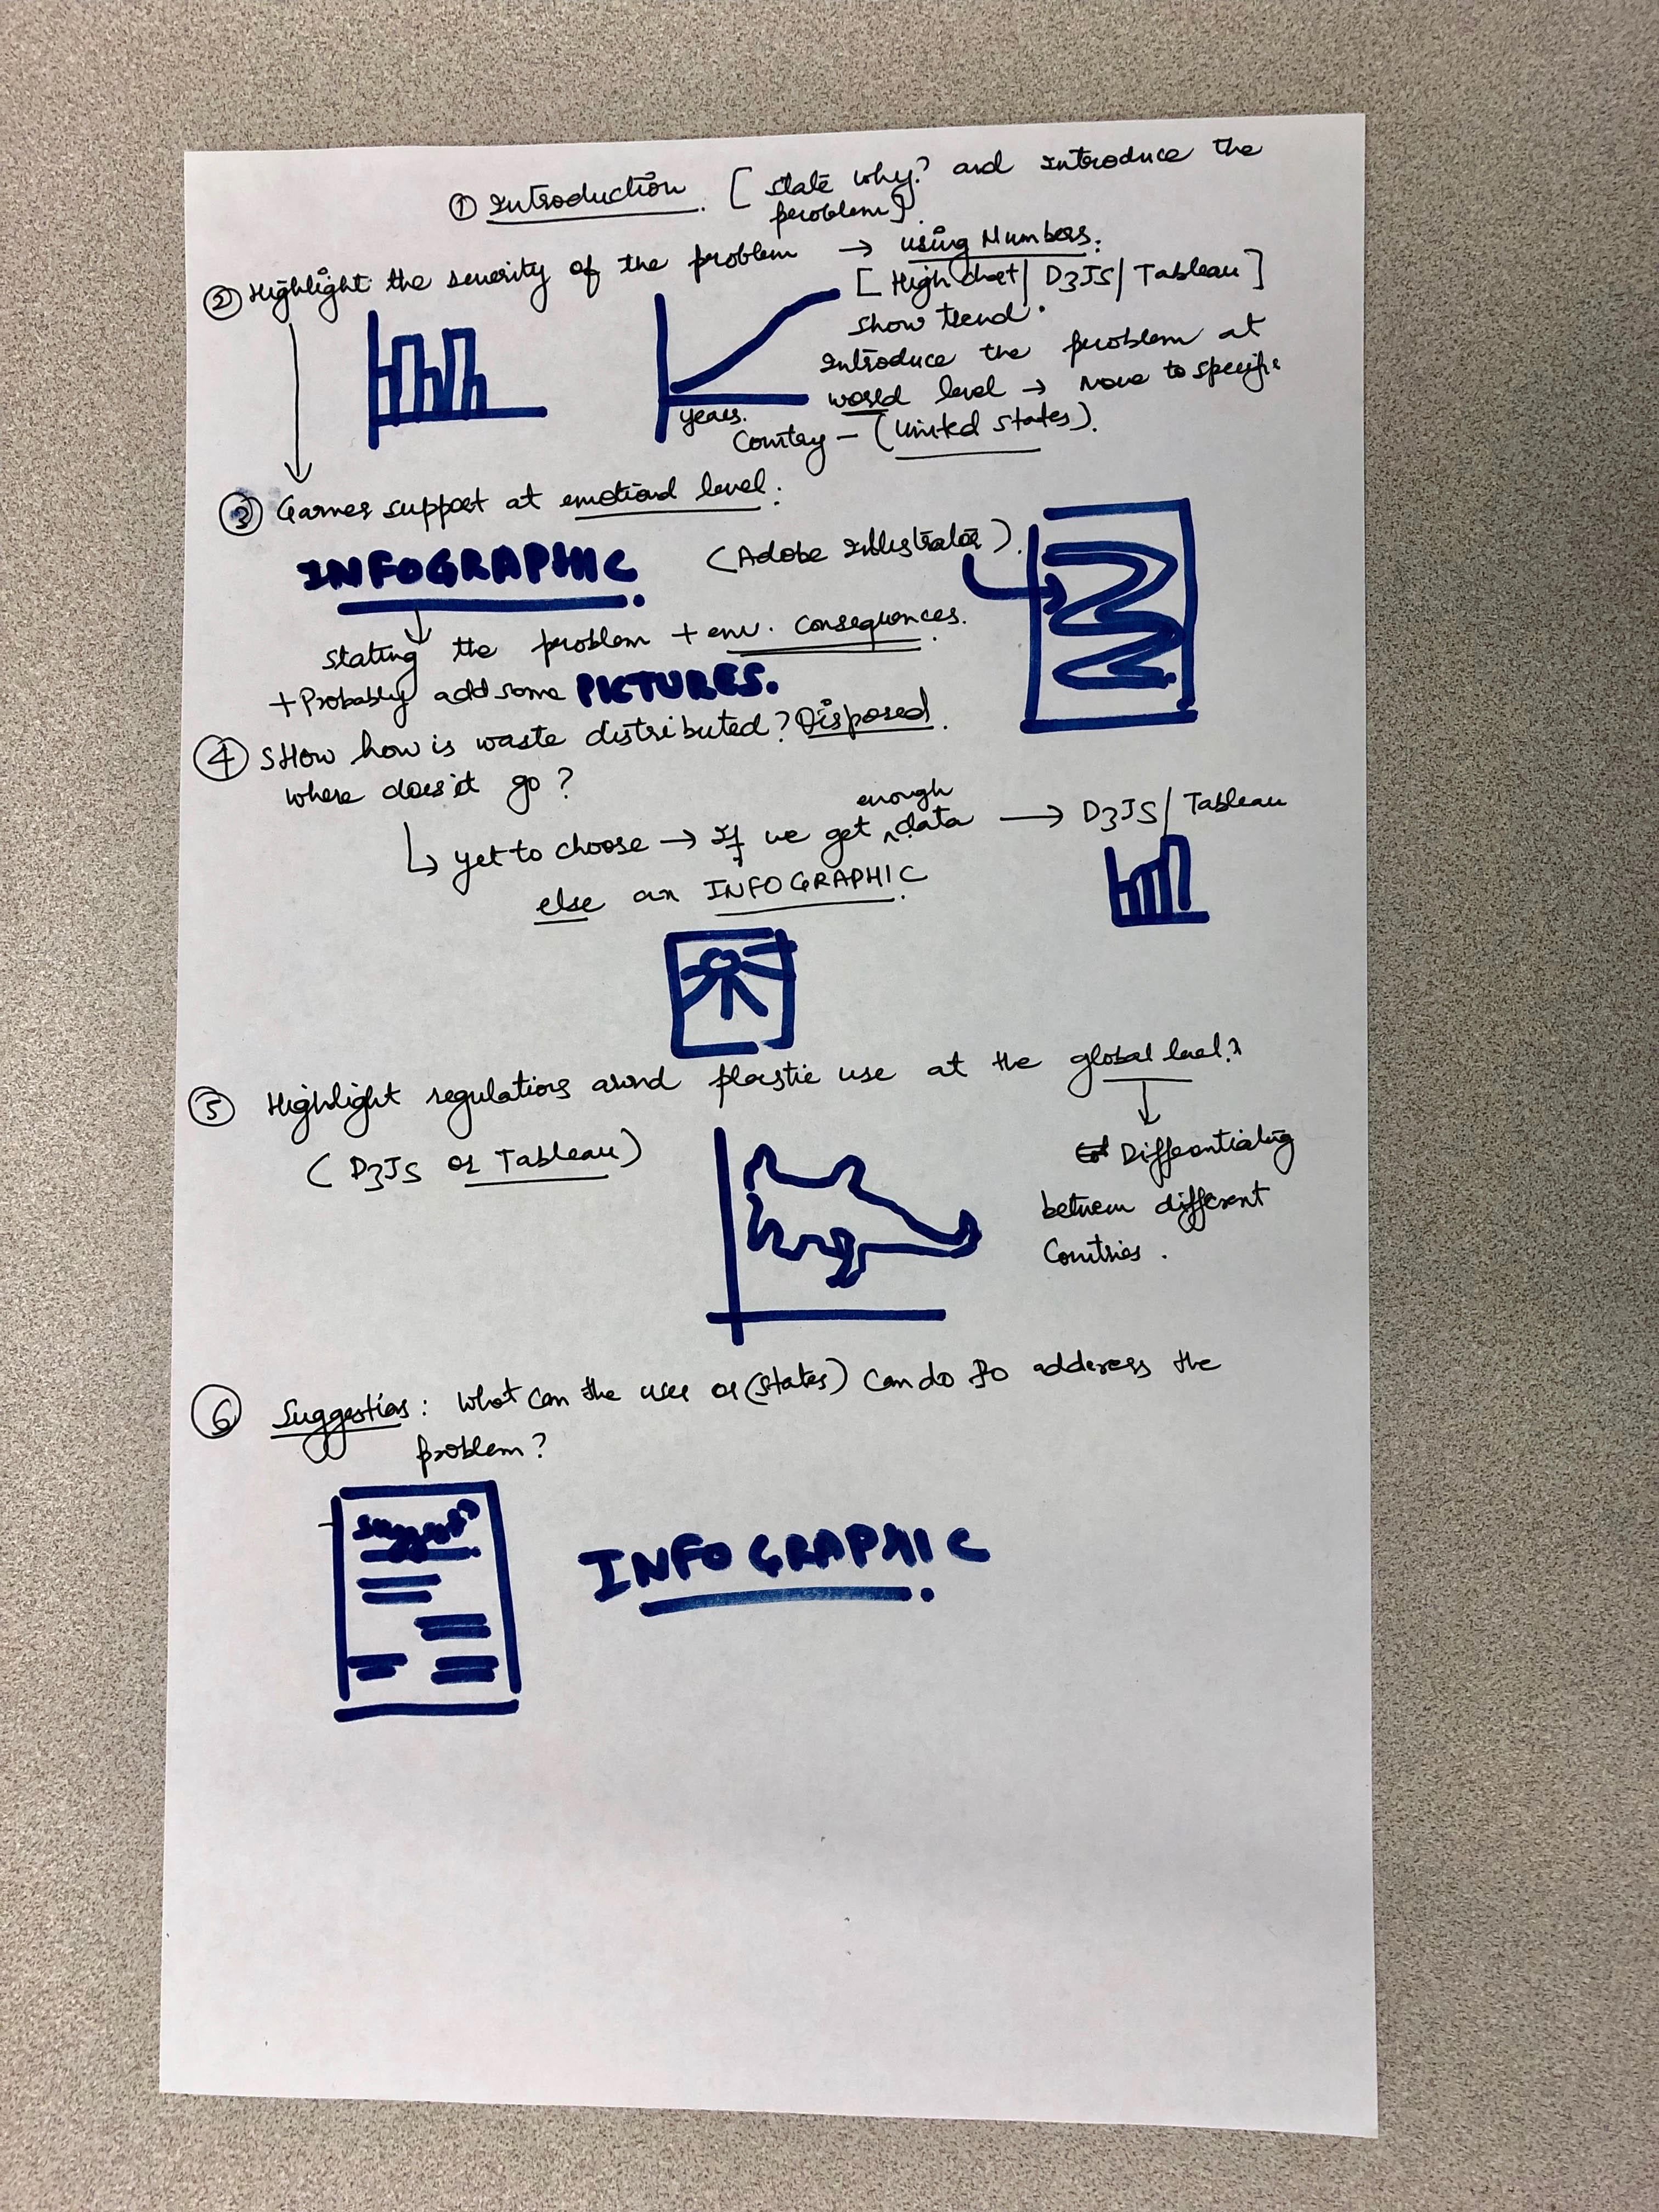 ① Introduction. [ state why? and introduce the
problem].
② Highlight the severity of the problem → using Numbers.
[ Highchart/ D3JS/ Tableau ]
show trend.
Introduce the problem at
world level → move to specific
years.
Country – (United States).
③ Garner support at emotional level.
INFOGRAPHIC. (Adobe Illustrator).
stating the problem + env. consequences.
+ Probably add some PICTURES.
④ SHow how is waste distributed? Disposed.
where does it go?
enough
↳ yet to choose → If we get ^ data → D3JS/ Tableau
else an INFOGRAPHIC.
⑤ Highlight regulations around plastic use at the global level.
(D3JS or Tableau)
Differentiating
between different
Countries.
⑥ Suggestions: What can the user or (states) can do to address the
problem?
INFOGRAPHIC.